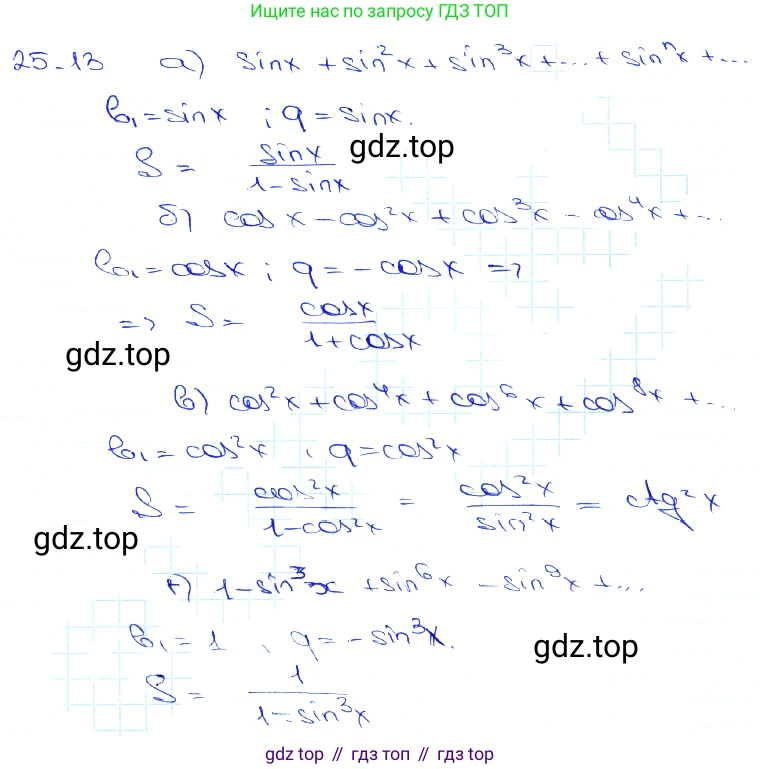 Ищите нас по запросу ГДЗ ТОП
25-13 а) sinx + sin²x + sin³x + ... + sinⁿx + ...
b₁ = sinx ; q = sinx.
S = sinx / (1 - sinx)
gdz.top
б) cos x - cos²x + cos³x - cos⁴x + ...
b₁ = cosx ; q = -cosx =>
=> S = cosx / (1 + cosx)
gdz.top
в) cos²x + cos⁴x + cos⁶x + cos⁸x + ...
b₁ = cos²x , q = cos²x
S = cos²x / (1 - cos²x) = cos²x / sin²x = ctg²x
gdz.top
г) 1 - sin³x + sin⁶x - sin⁹x + ...
b₁ = 1 , q = -sin³x.
gdz.top
S = 1 / (1 - sin³x)
gdz top // гдз топ // gdz top